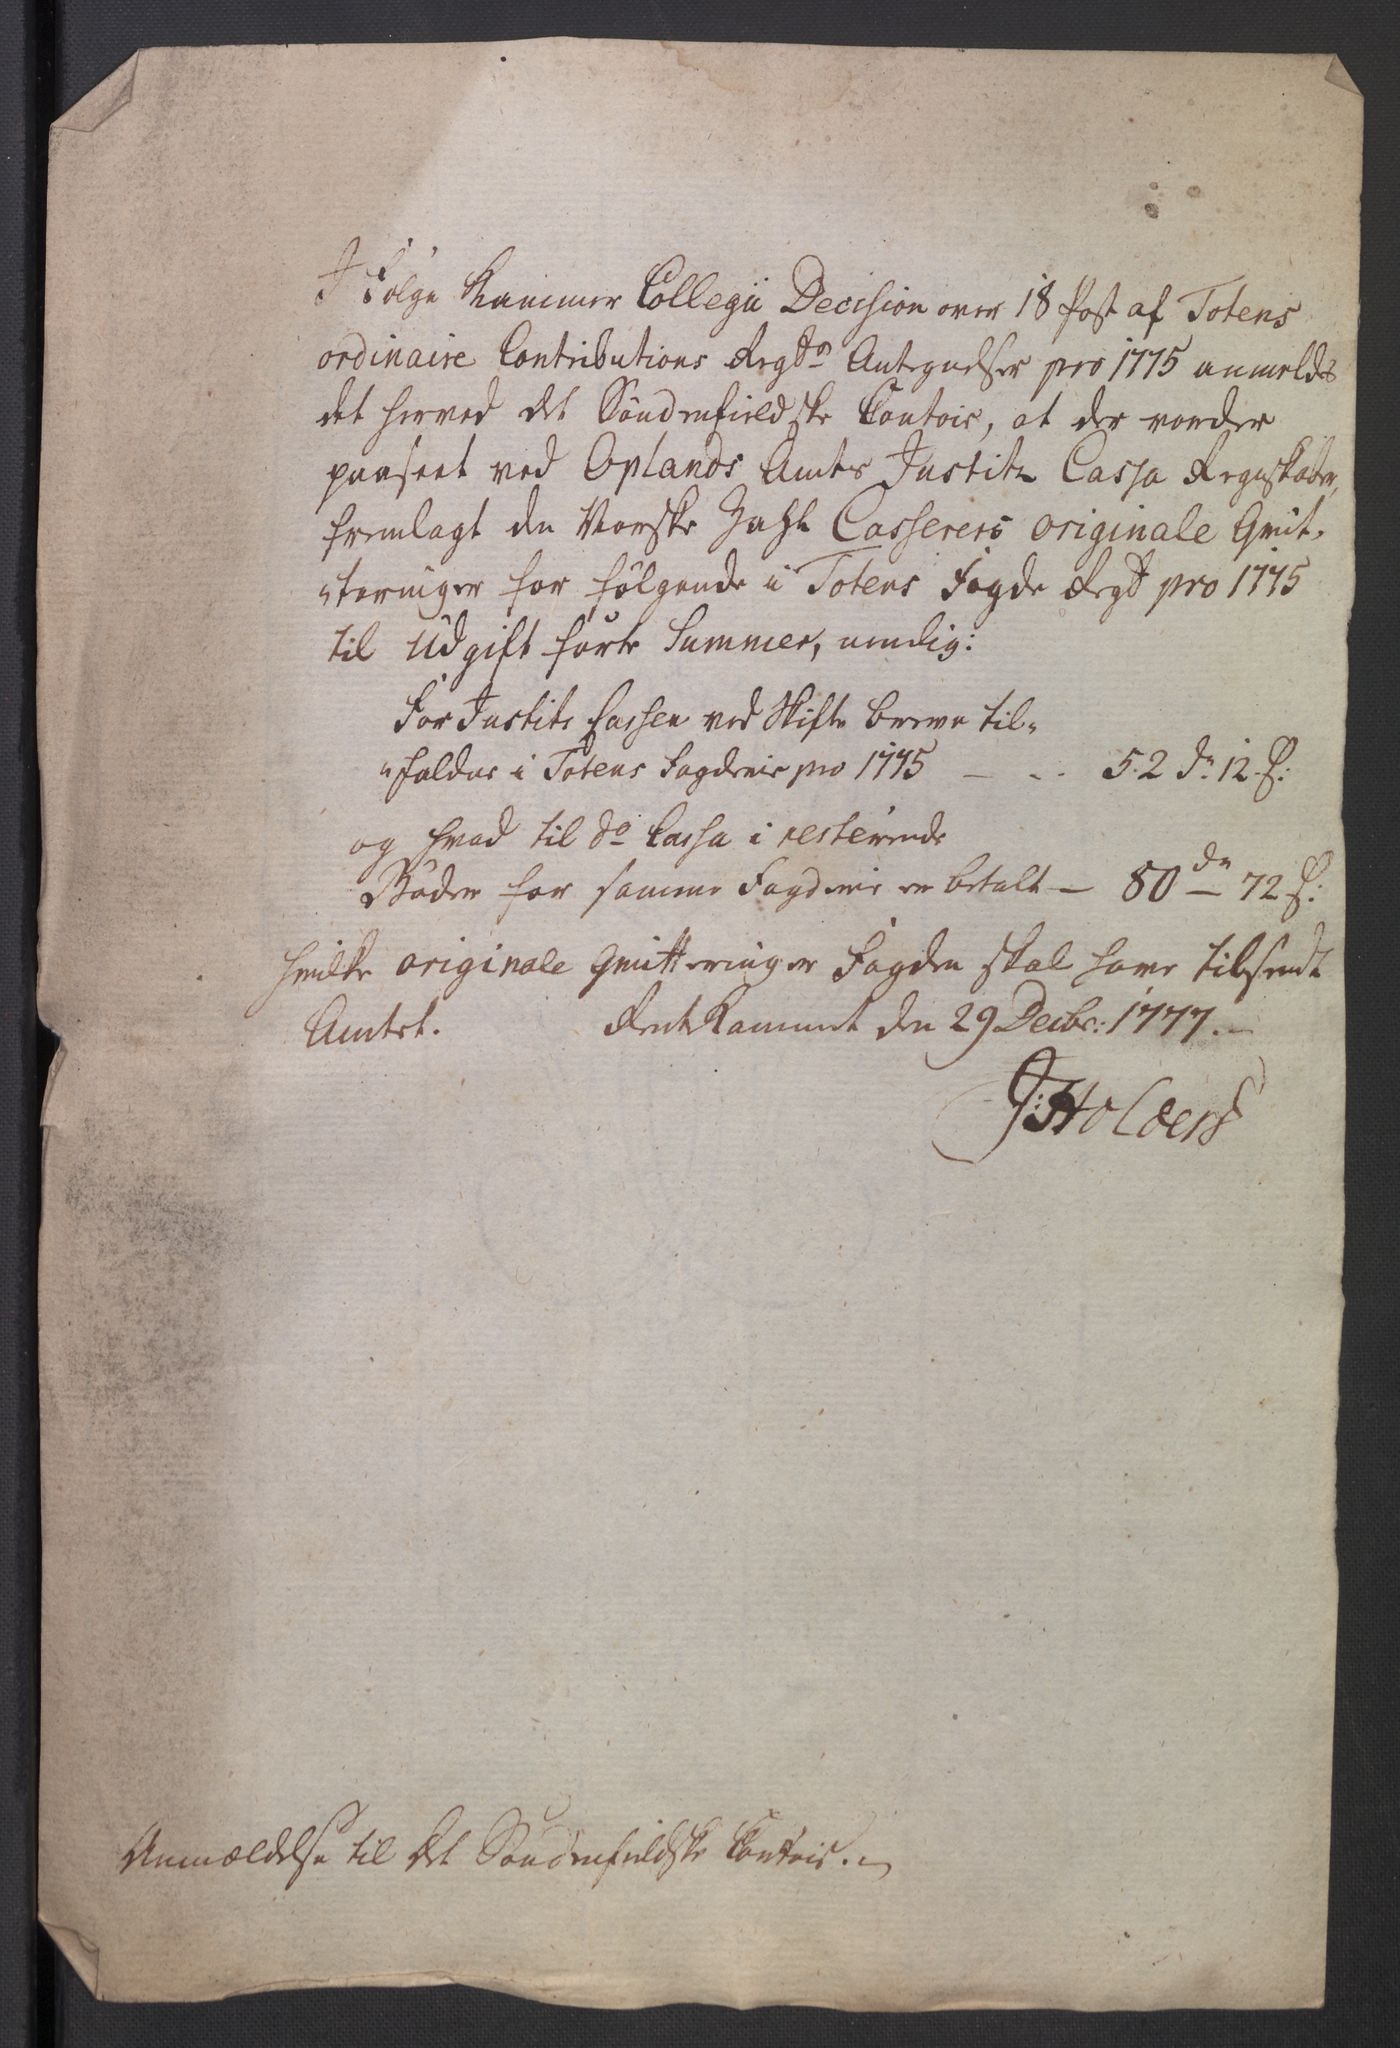 I Følge Kammer Collegii Decision over 18 Post af Totens
ordinaire Contributions Regsk: Antegnelser pro 1775 anmeldes
det herved det Söndenfieldske Contoir, at der vorder
passeret ved Oplands Amts Justitz Cassa Regnskaber,
fremlagt de Norske Zahl Casserers originale Qvit-
"teringer for følgende i Totens Fogde Regsk pro 1775
til Udgift førte Summer, nemlig:
For Justits Cassen ved Skifte breve til-
"faldne i Totens Fogderie pro 1775 — - - 52 dr 12 s:
og hvad til do Cassa i resterende
Bøder for samme Fogderie er betalt — 80 dr 72 s:
hvilke originale Qvitteringer Fogden skal have tilsendt
Amtet. RenteKammeret den 29 Decbr: 1777.
J: Holdersd
Anmældelse til det Söndenfieldske Contoir.